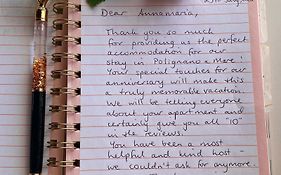 Dear Annamaria,
Thank you so much
for providing us the perfect
accommodation for our
stay in Polignano a Mare!
Your special touches for our
anniversary will make this
a truly memorable vacation.
We will be telling everyone
about your apartment and
certainly give you all "10"
in the reviews.
You have been a most
helpful and kind host -
we couldn't ask for anymore.